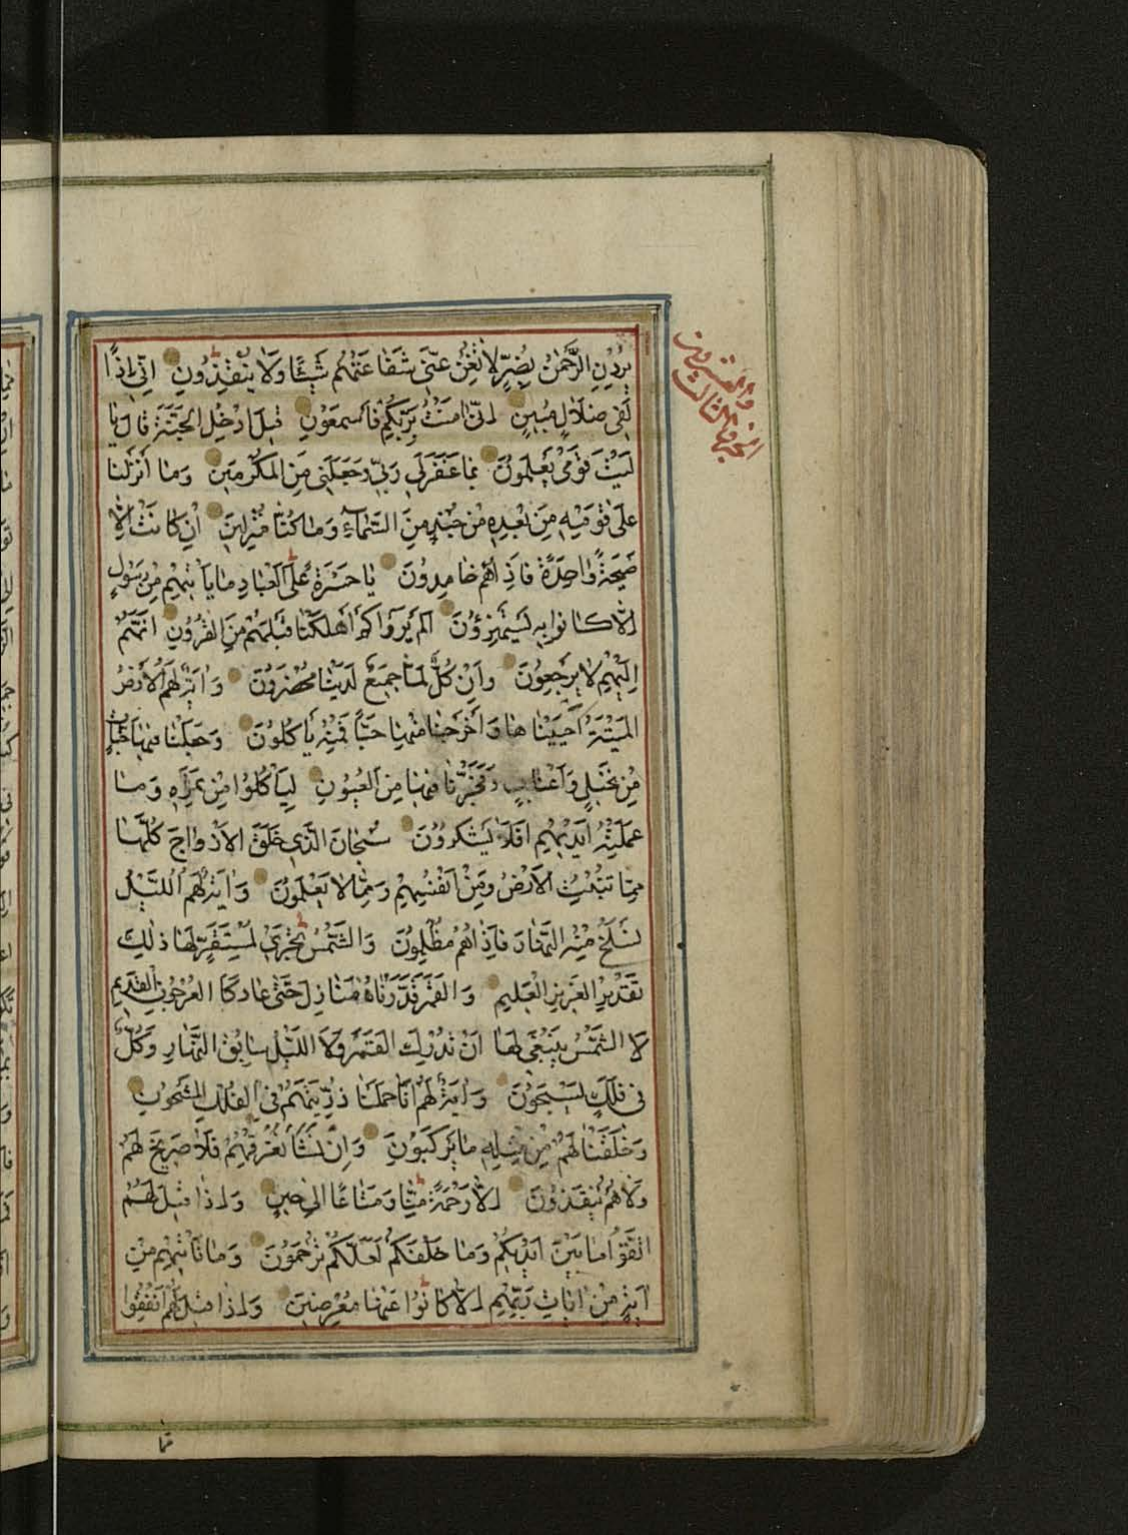 يُرِدْنِ الرَّحْمٰنُ بِضُرٍّ لَا تُغْنِ عَنِّي شَفَاعَتُهُمْ شَيْئًا وَلَا يُنْقِذُونِ اِنِّي اِذًا
لَفِي ضَلَالٍ مُبِينٍ اِنِّي اٰمَنْتُ بِرَبِّكُمْ فَاسْمَعُونِ قِيلَ ادْخُلِ الْجَنَّةَ قَالَ يَا
لَيْتَ قَوْمِي يَعْلَمُونَ بِمَا غَفَرَ لِي رَبِّي وَجَعَلَنِي مِنَ الْمُكْرَمِينَ وَمَا اَنْزَلْنَا
عَلٰى قَوْمِهِ مِنْ بَعْدِهِ مِنْ جُنْدٍ مِنَ السَّمَاءِ وَمَا كُنَّا مُنْزِلِينَ اِنْ كَانَتْ اِلَّا
صَيْحَةً وَاحِدَةً فَاِذَا هُمْ خَامِدُونَ يَا حَسْرَةً عَلَى الْعِبَادِ مَا يَأْتِيهِمْ مِنْ رَسُولٍ
اِلَّا كَانُوا بِهِ يَسْتَهْزِؤُنَ اَلَمْ يَرَوْا كَمْ اَهْلَكْنَا قَبْلَهُمْ مِنَ الْقُرُونِ اَنَّهُمْ
اِلَيْهِمْ لَا يَرْجِعُونَ وَاِنْ كُلٌّ لَمَّا جَمِيعٌ لَدَيْنَا مُحْضَرُونَ وَاٰيَةٌ لَهُمُ الْاَرْضُ
الْمَيْتَةُ اَحْيَيْنَاهَا وَاَخْرَجْنَا مِنْهَا حَبًّا فَمِنْهُ يَأْكُلُونَ وَجَعَلْنَا فِيهَا جَنَّاتٍ
مِنْ نَخِيلٍ وَاَعْنَابٍ وَفَجَّرْنَا فِيهَا مِنَ الْعُيُونِ لِيَأْكُلُوا مِنْ ثَمَرِهِ وَمَا
عَمِلَتْهُ اَيْدِيهِمْ اَفَلَا يَشْكُرُونَ سُبْحَانَ الَّذِي خَلَقَ الْاَزْوَاجَ كُلَّهَا
مِمَّا تُنْبِتُ الْاَرْضُ وَمِنْ اَنْفُسِهِمْ وَمِمَّا لَا يَعْلَمُونَ وَاٰيَةٌ لَهُمُ اللَّيْلُ
نَسْلَخُ مِنْهُ النَّهَارَ فَاِذَا هُمْ مُظْلِمُونَ وَالشَّمْسُ تَجْرِي لِمُسْتَقَرٍّ لَهَا ذٰلِكَ
تَقْدِيرُ الْعَزِيزِ الْعَلِيمِ وَالْقَمَرَ قَدَّرْنَاهُ مَنَازِلَ حَتّٰى عَادَ كَالْعُرْجُونِ الْقَدِيمِ
لَا الشَّمْسُ يَنْبَغِي لَهَا اَنْ تُدْرِكَ الْقَمَرَ وَلَا اللَّيْلُ سَابِقُ النَّهَارِ وَكُلٌّ
فِي فَلَكٍ يَسْبَحُونَ وَاٰيَةٌ لَهُمْ اَنَّا حَمَلْنَا ذُرِّيَّتَهُمْ فِي الْفُلْكِ الْمَشْحُونِ
وَخَلَقْنَا لَهُمْ مِنْ مِثْلِهِ مَا يَرْكَبُونَ وَاِنْ نَشَأْ نُغْرِقْهُمْ فَلَا صَرِيخَ لَهُمْ
وَلَا هُمْ يُنْقَذُونَ اِلَّا رَحْمَةً مِنَّا وَمَتَاعًا اِلٰى حِينٍ وَاِذَا قِيلَ لَهُمُ
اتَّقُوا مَا بَيْنَ اَيْدِيكُمْ وَمَا خَلْفَكُمْ لَعَلَّكُمْ تُرْحَمُونَ وَمَا تَأْتِيهِمْ مِنْ
اٰيَةٍ مِنْ اٰيَاتِ رَبِّهِمْ اِلَّا كَانُوا عَنْهَا مُعْرِضِينَ وَاِذَا قِيلَ لَهُمْ اَنْفِقُوا
الجزو الثالث
والعشرون